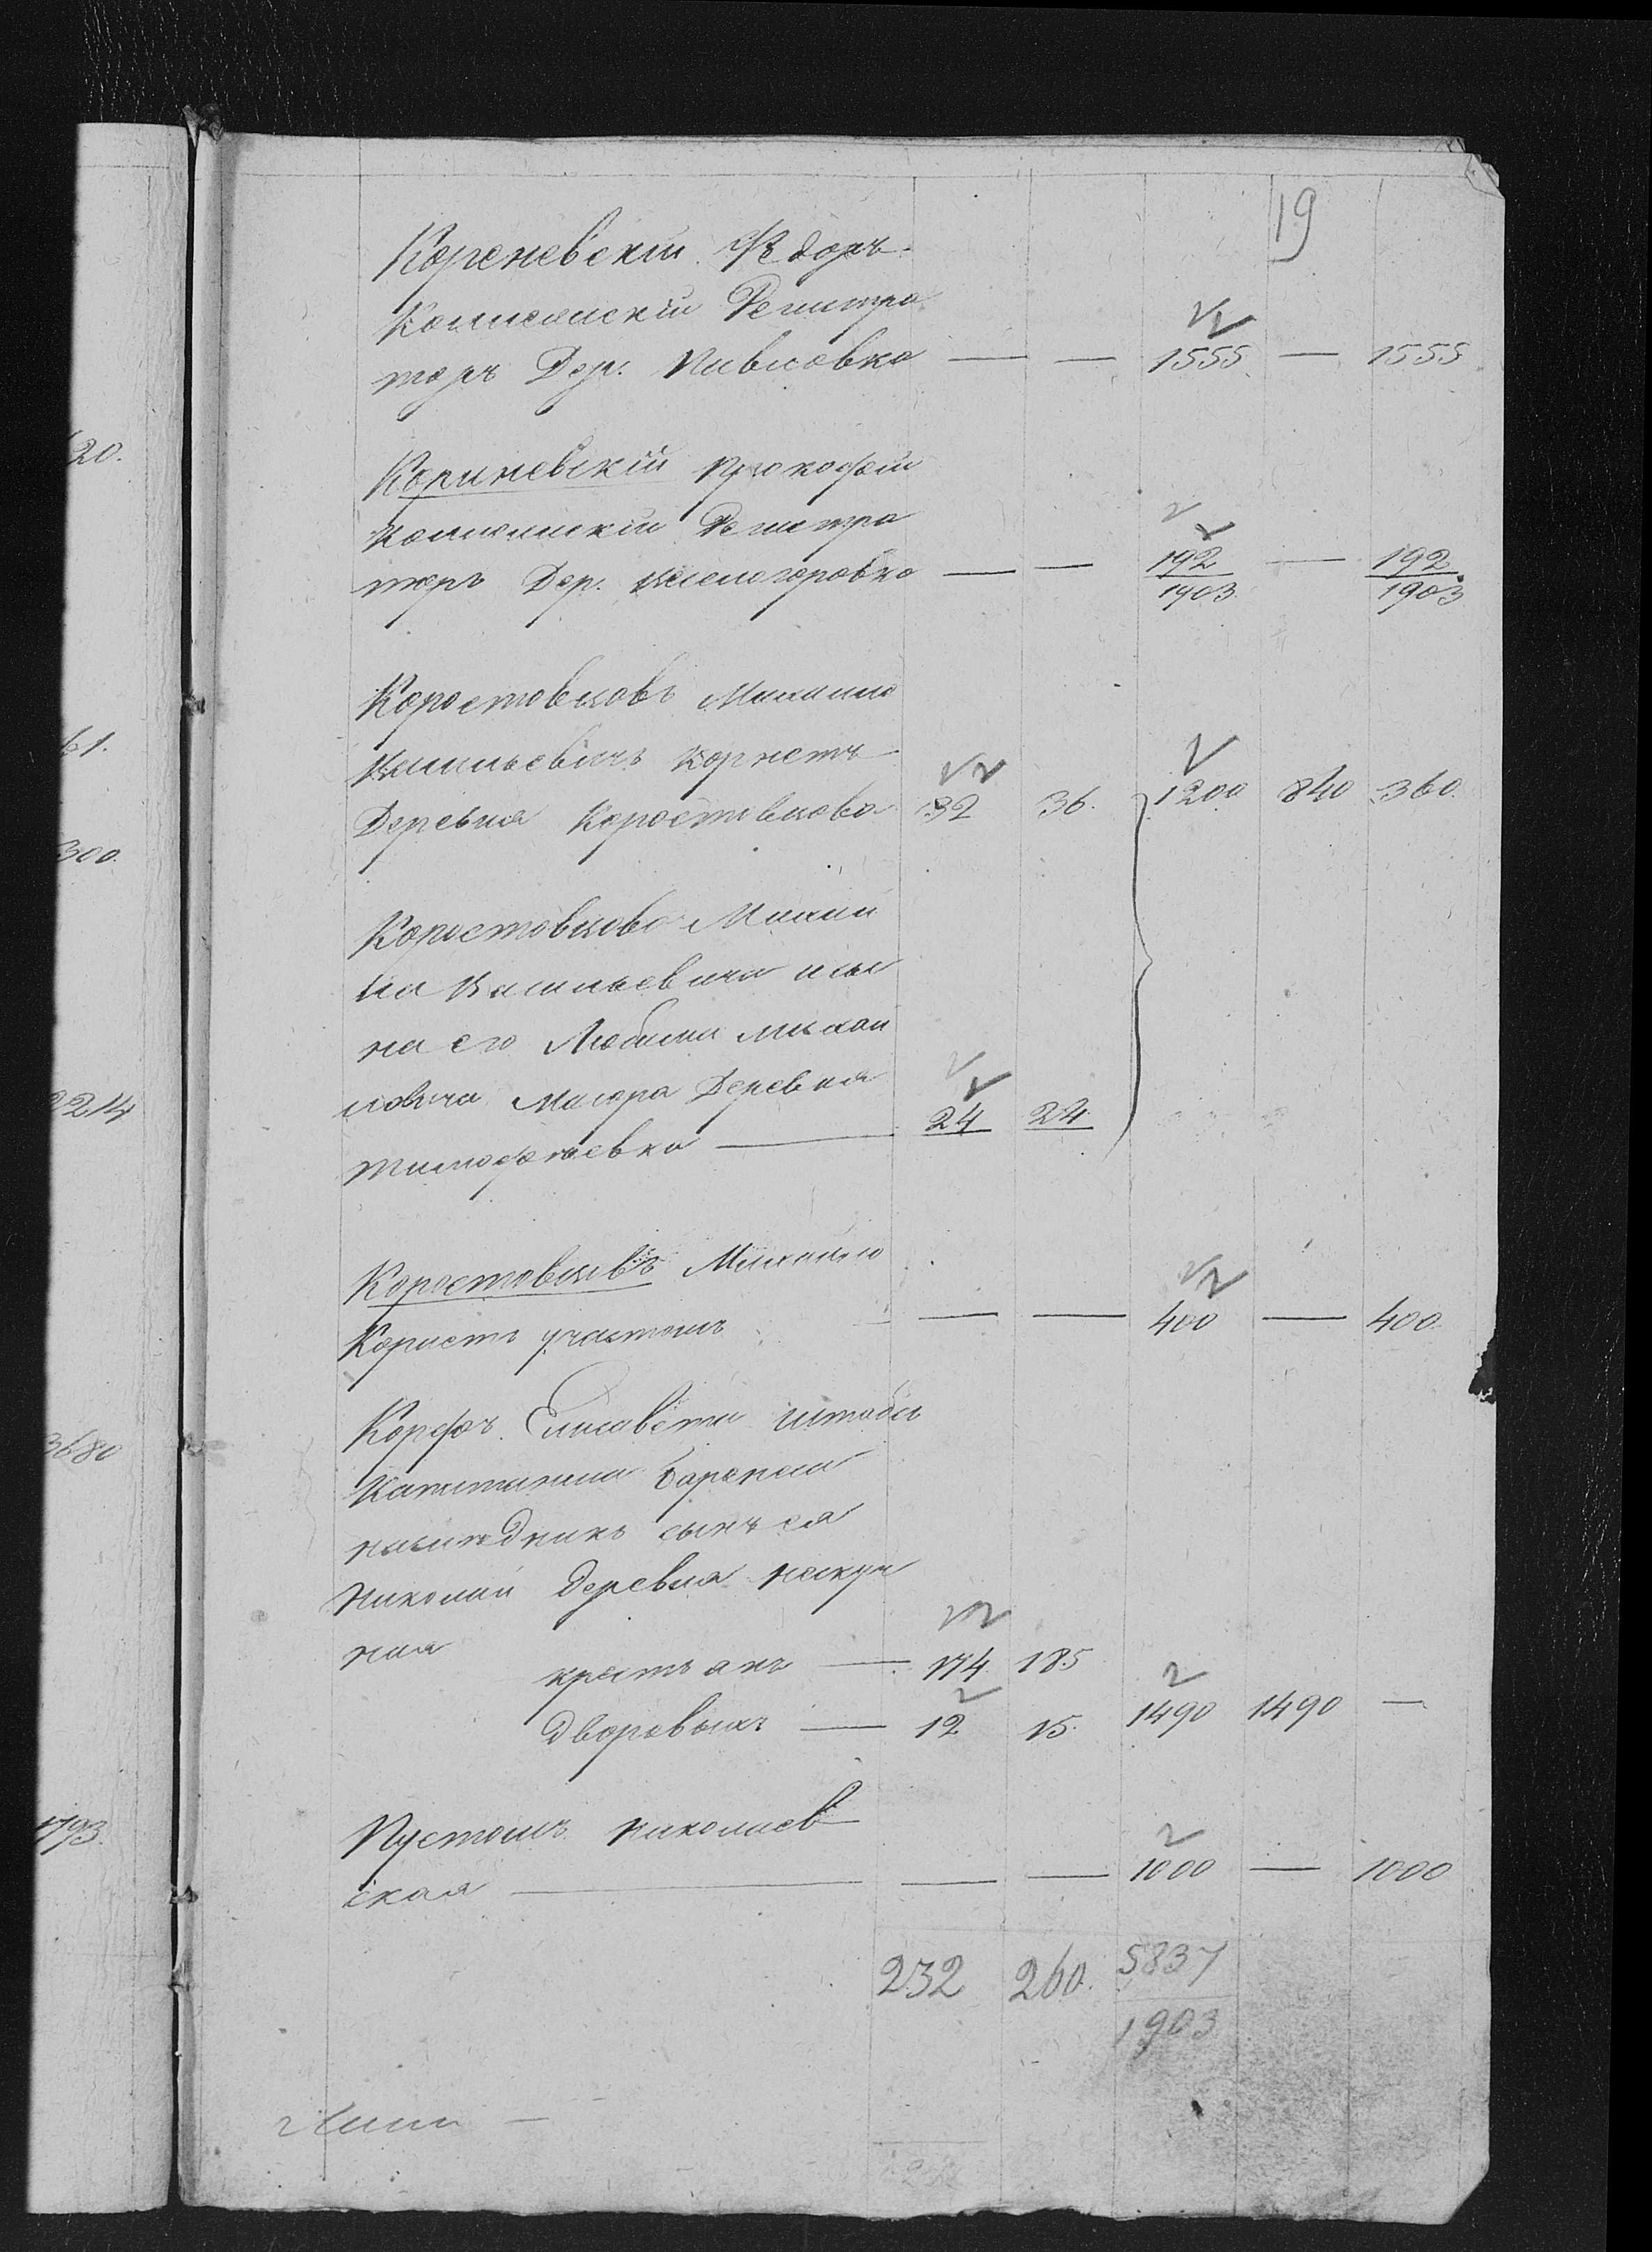 19
Кореневскій Ѳедоръ
Коллежскій Регистра
торъ Дер. — — 1555 — 1555
Кориневскій Прокофій
Коллежскій Регистра
торъ Дер. — — 192/1903 — 192/1903
Коростовцовъ Михаилъ
Васильевичъ Корнетъ
Деревня Коростовцова 32 36. 1200 840 360.
Коростовцова Михаи
ла Васильевича и сы
на его Любима Михаи
ловича Маіора Деревня
Тимофѣевка — 24 24
Коростовцовъ Михаилъ
Корнетъ участокъ — — 400 — 400.
Корфъ Елисавета Штабсъ
Капитанша Баронесса
наслѣдникъ сынъ ея
Николай Деревня Нескуч
ная
крестьянъ — 174. 185
дворовыхъ — 12 15. 1490 1490 —
Пустошь Николаев
ская — — — 1000 — 1000
232 260. 5837
1903
20.
61.
300.
2214
3680
1793.